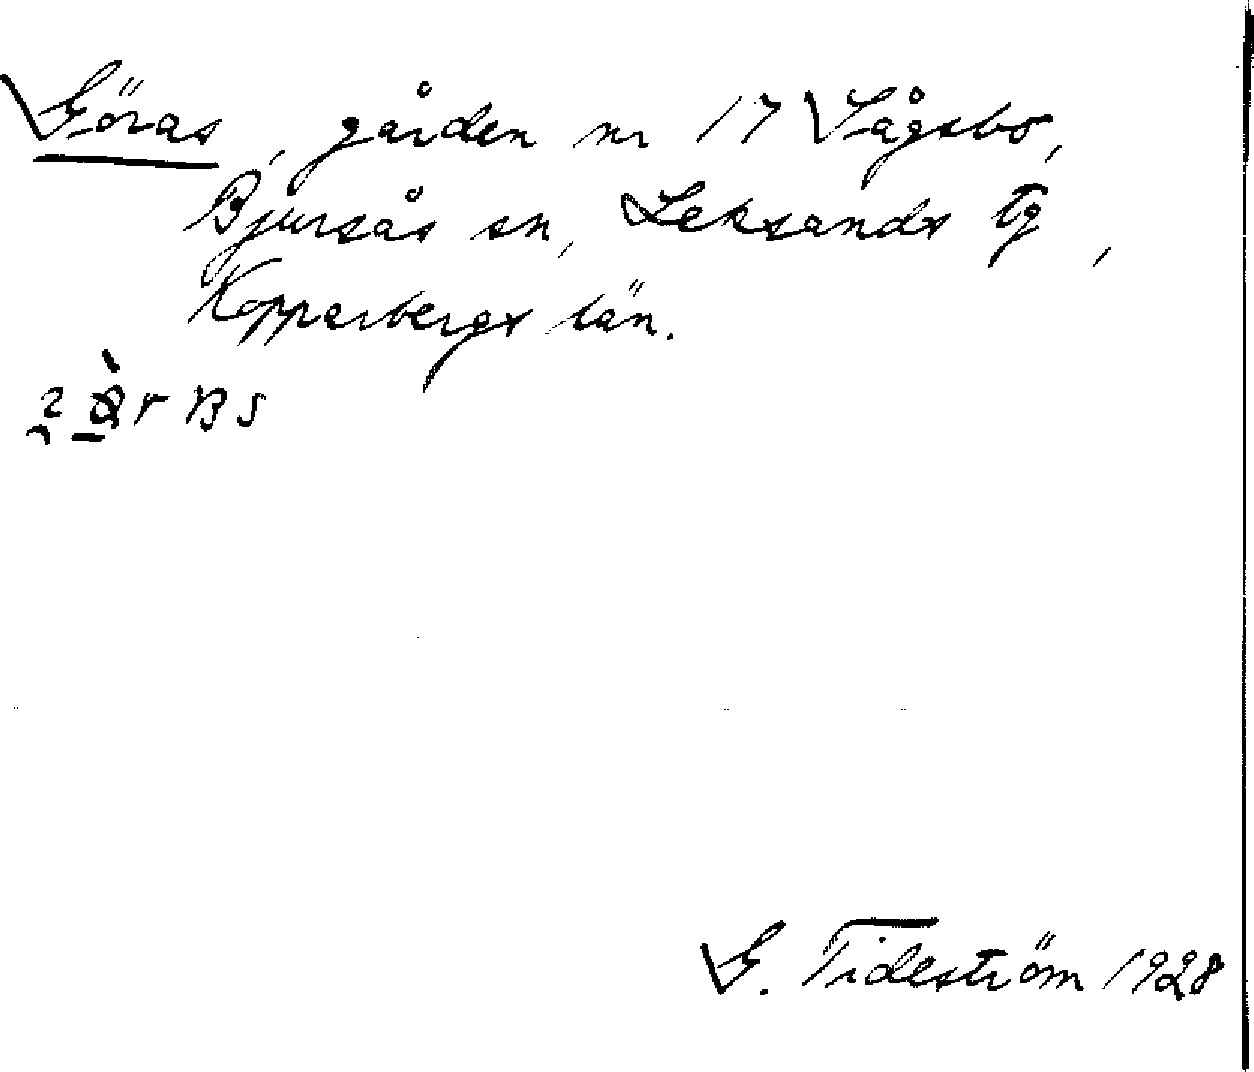 Göras, gården nr 17 Sågsbo,
Bjursås sn, Leksands tg,
Kopparbergs län.
G. Tideström 1928